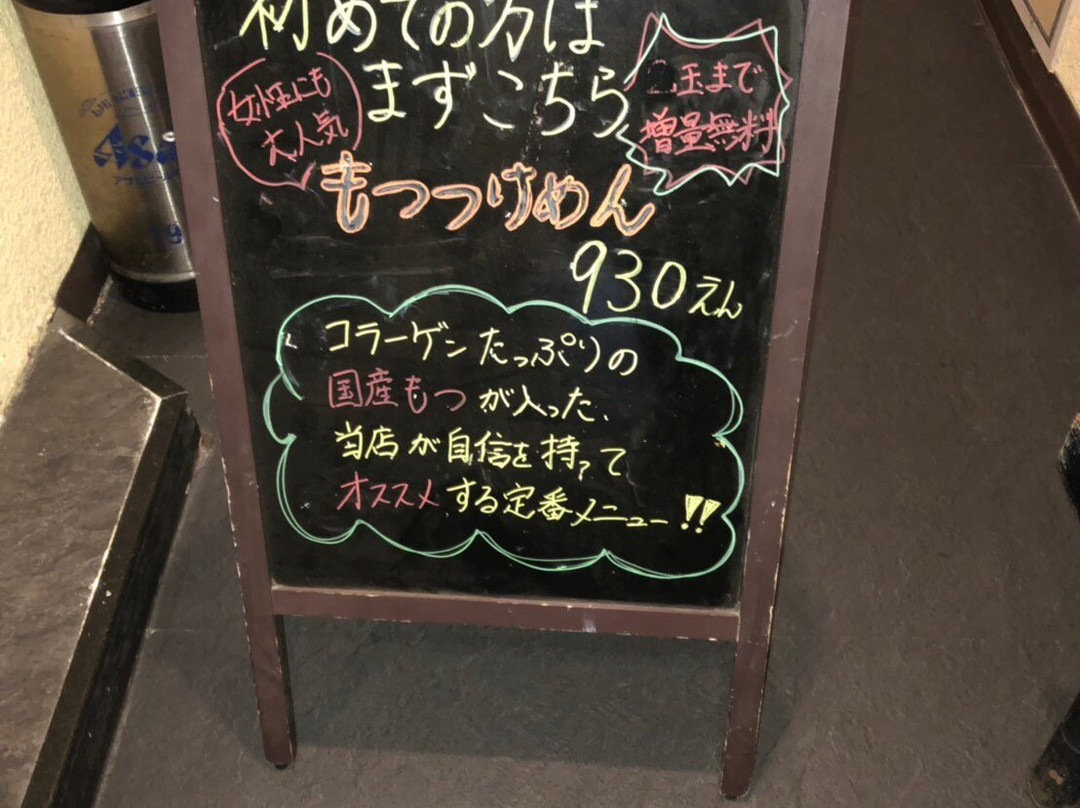 初めての方は
まずこちら
女性にも
大人気
玉まで
増量無料
もつつけめん
930えん
コラーゲンたっぷりの
国産もつが入った、
当店が自信を持って
オススメする定番メニュー!!
アサヒ